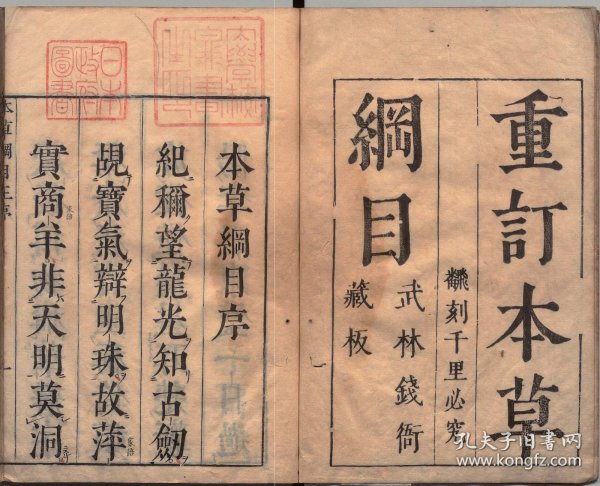 重訂本草
綱目
翻刻千里必究
武林錢衙
藏板
本草綱目序
紀稱望龍光知古劒
覘寶氣辯明珠故萍
實商羊非天明莫洞
日本
政府
圖書
孔夫子旧书网
www.kongfz.com